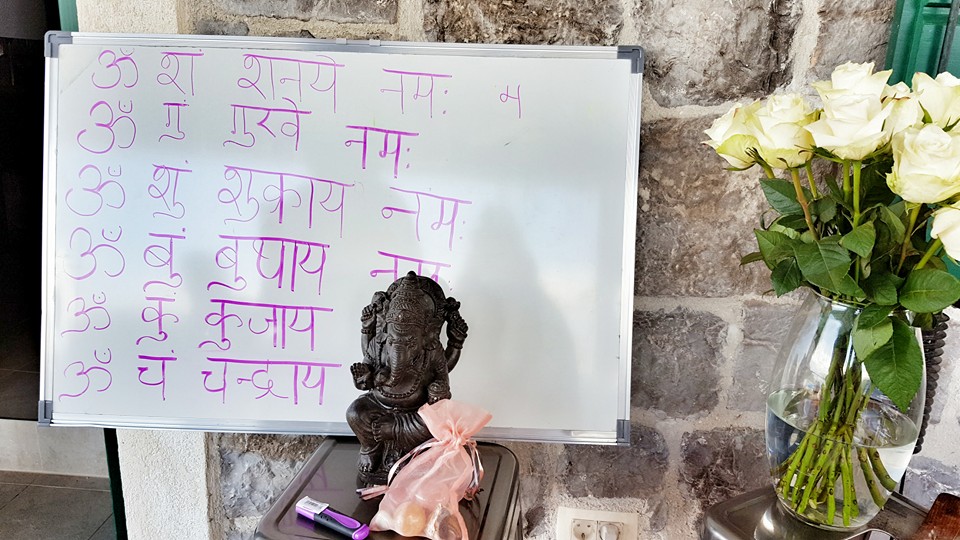 ॐ शं शनये नमः न
ॐ गुं गुरवे नमः
ॐ शुं शुक्राय नमः
ॐ बुं बुधाय
ॐ कुं कुजाय
ॐ चं चन्द्राय